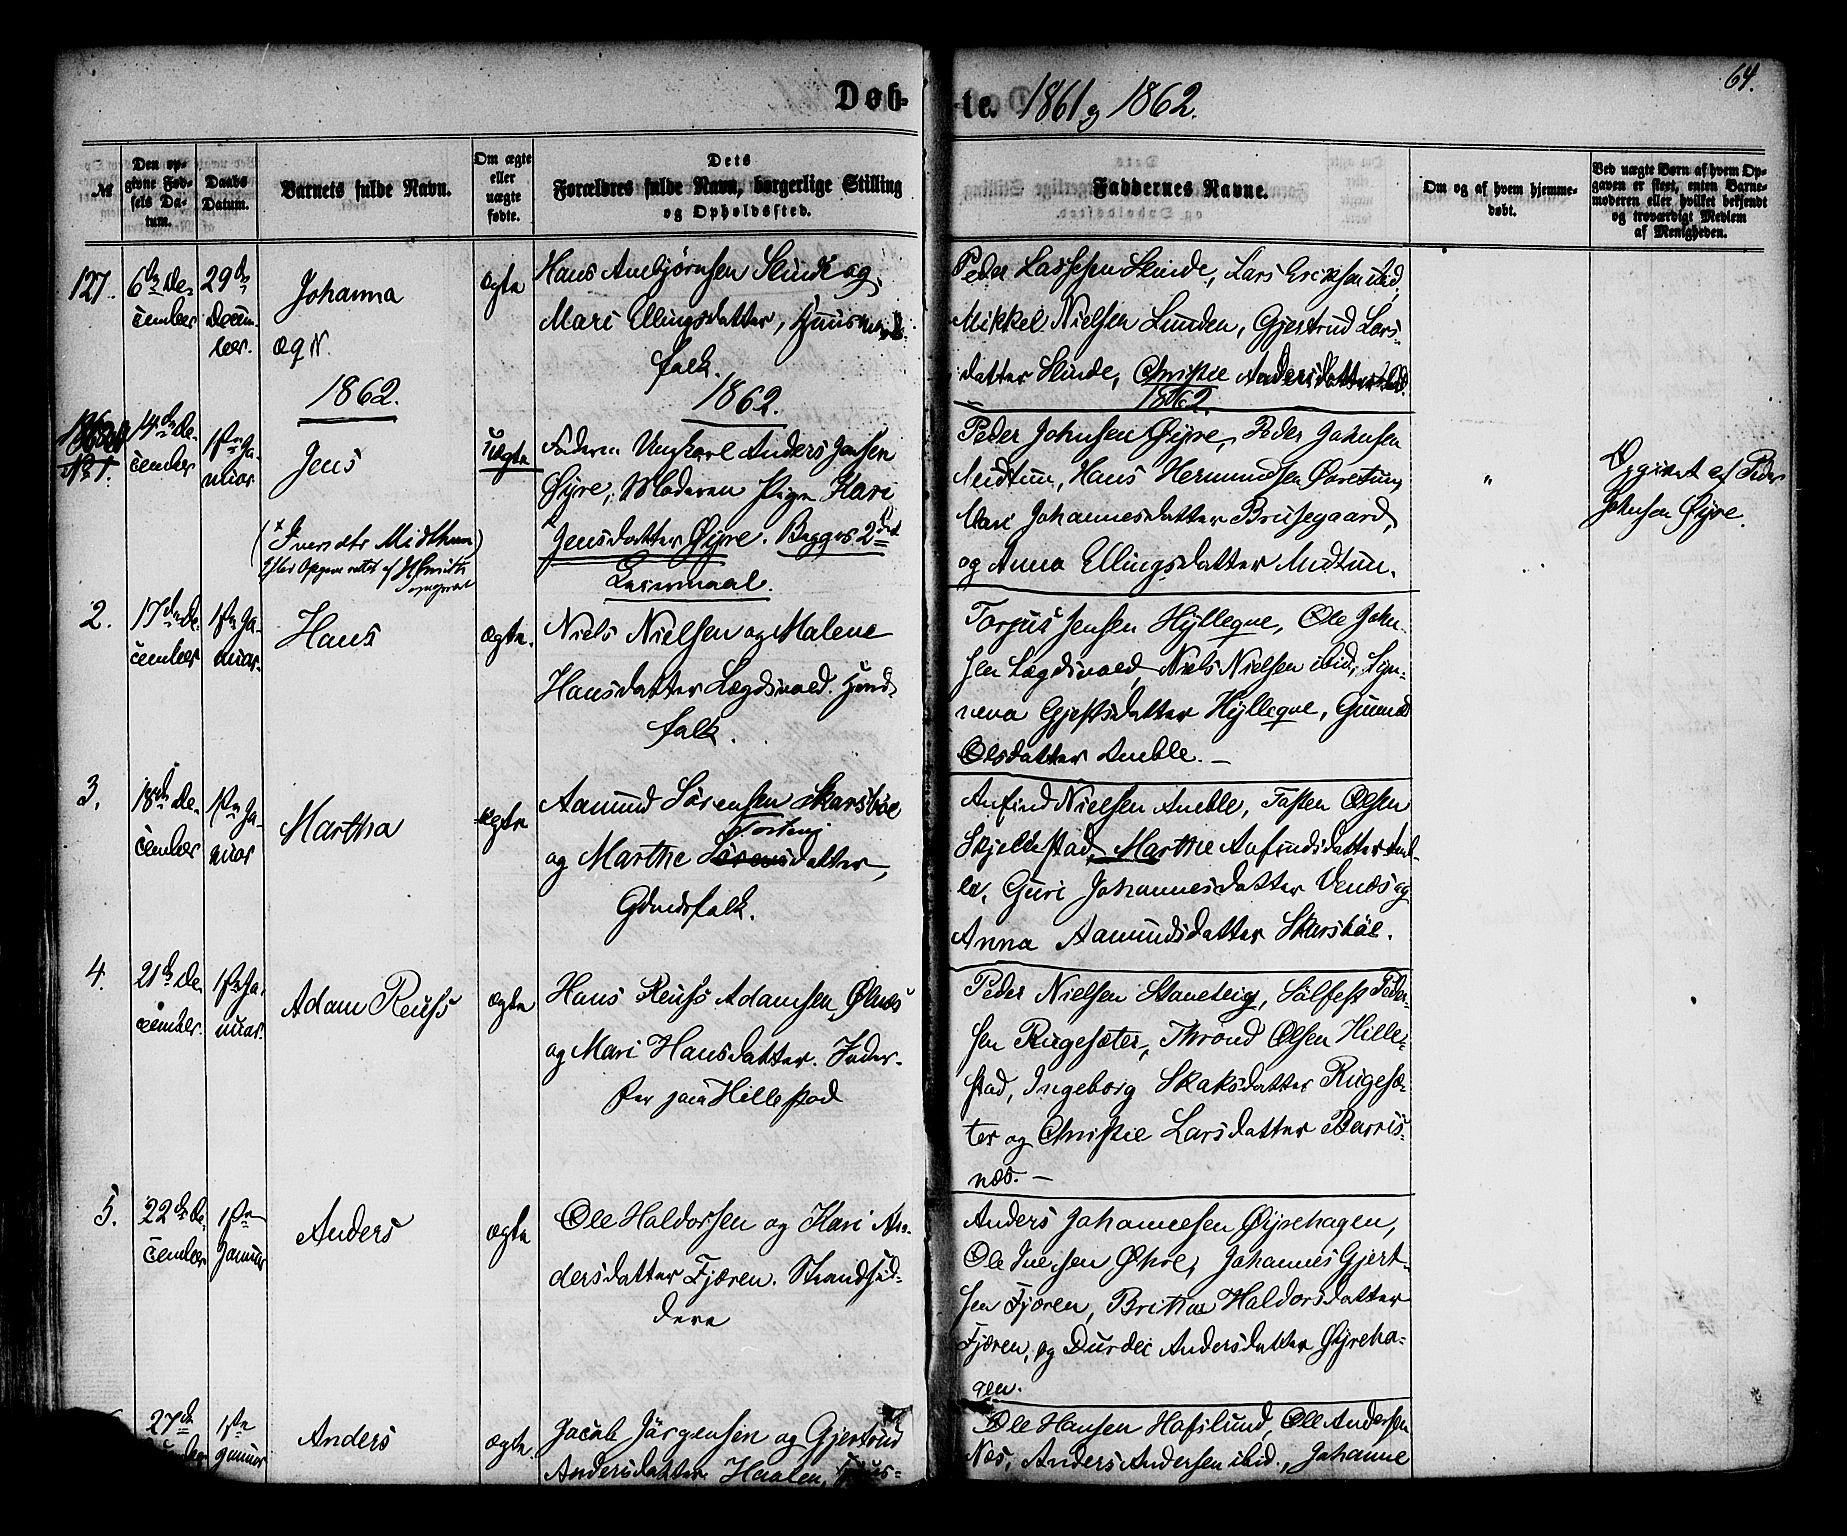 64.
Døb-te. 1861 og 1862.
№
Den op-
givne Fød-
sels Da-
tum.
Daabs
Datum.
Barnets fulde Navn.
Om ægte
eller
uægte
fødte.
Dets
Forældres fulde Navn, borgerlige Stilling
og Opholdssted.
Faddernes Navne.
Om og af hvem hjemme-
døbt.
Ved uægte Børn af hvem Op-
gaven er skeet, enten Barne-
moderen eller hvilket bekjendt
og troværdigt Medlem
af Menigheden.
127.
6te De-
cember
29de
Decem-
ber.
Johanna
ægte
Hans Ambjørnsen Slinde og
Mari Ellingsdatter, Huusmands-
folk.
Peder Lassesen Slinde, Lars Eriksen ibid,
Mikkel Nielsen Lunden, Gjertrud Lars-
datter Slinde, Christie Andersdatter ibid.
og N.
1862.
1862.
1862.
No 1.
14de De-
cember
1ste Ja-
nuar
Jens
Uægte
Faderen Ungkarl Anders Jensen
Øyre, Moderen Pige Kari
Jensdatter Øyre. Begges 2det
Leiermaal.
Peder Johnsen Øyre, Peder Johnsen
Midtun, Hans Hermundsen
Mari Johannesdatter Brusegaard,
og Anna Ellingsdatter Midtun.
"
Opgivet af Peder
Johnsen Øyre.
2.
17de De-
cember
1ste Ja-
nuar.
Hans
ægte.
Niels Nielsen og Malene
Hansdatter Lægdsvold.
folk.
Torjus Jensen Hyllegve, Ole John-
sen Lægdsvold, Niels Nielsen ibid, Syn-
neva Gjestsdatter Hyllegve,
Olsdatter Amble. —
3.
18de De-
cember
1ste Ja-
nuar
Martha
ægte
Aamund Sørensen Skarsbøe
og Marthe Torstens
Sørensdatter,
Gaardfolk.
Anfind Nielsen Amble, Tosten Olsen
Skjellestad, Marthe Anfindsdatter Amb-
le, Guri Johannesdatter Venæs og
Anna Aamundsdatter Skarsbøe.
4.
21de De-
cember.
1ste Ja-
nuar.
Adam Reuss
ægte
Hans Reuss Adamsen Ølnæs
og Mari Hansdatter. Inder-
ster paa Hillestad
Peder Nielsen Staneteig, Sølfest Peder-
sen Rugesæter, Thrond Olsen Hille-
stad, Ingeborg Skaksdatter Rugesæ-
ter og Christie Larsdatter Barris-
næs. —
5.
22de De-
cember
1ste
Januar
Anders
ægte
Ole Haldorsen og Kari An-
dersdatter Fjæren. Strandsid-
dere
Anders Johannesen Øyrehagen,
Ole Iversen Øyre, Johannes Gjert-
sen Fjæren, Brithe Haldorsdatter
Fjæren, og Durdei Andersdatter Øyreha-
gen.
27de
1ste
Januar
Anders
ægte.
Jacob Jørgensen og Gjertrud
Andersdatter Haalen, Huus-
Ole Hansen Hafslund, Ole Andersen
Næs, Anders Andersen ibid., Johanne